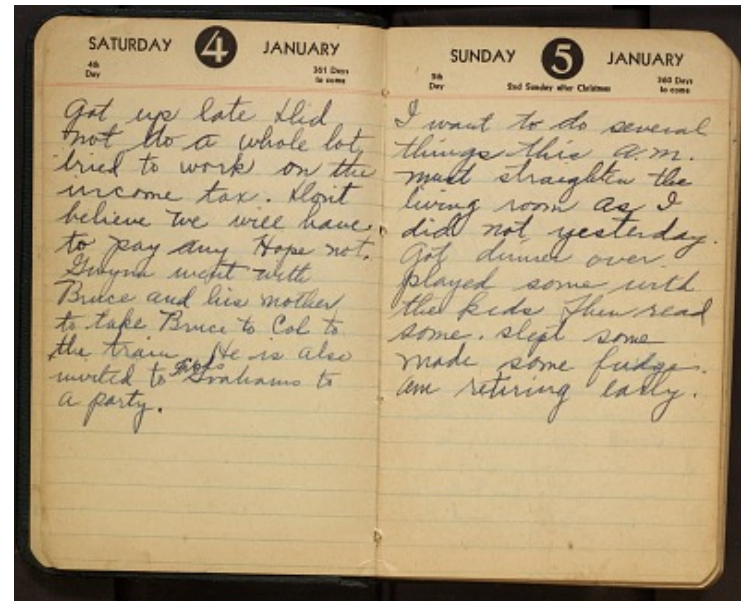 SATURDAY 4 JANUARY
4th Day
361 Days to come
Got up late Did
not do a whole lot
tried to work on the
income tax. Don't
believe we will have
to pay any Hope not.
Gwynn went with
Bruce and his mother
to take Bruce to Col to
the train He is also
invited to Grahams to
a party.
SUNDAY 5 JANUARY
5th Day
2nd Sunday after Christmas
360 Days to come
I want to do several
things this a.m.
must straighten the
living room as I
did not yesterday.
Got dinner over
played some with
the kids Then read
some. slept some
made some fudge.
am retiring early.